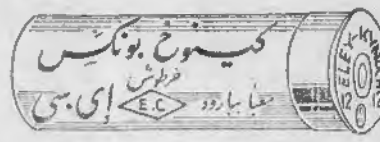 كينوخ بونكس
خرطوش
معبأ ببارود E.C إى.سى
ELEY-KYNOCH
12